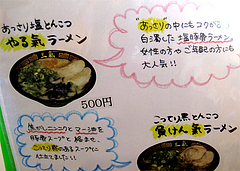 あっさり塩とんこつ
やる氣ラーメン
500円
"あっさり"の中にもコクがある
白濁した塩豚骨ラーメン
女性の方やご年配の方にも
大人気!!
焦がしニンニクとマー油を
豚骨スープと絡ませ、
こってり感のあるスープに
仕立てました!!
こってり黒とんこつ
負けん氣ラーメン